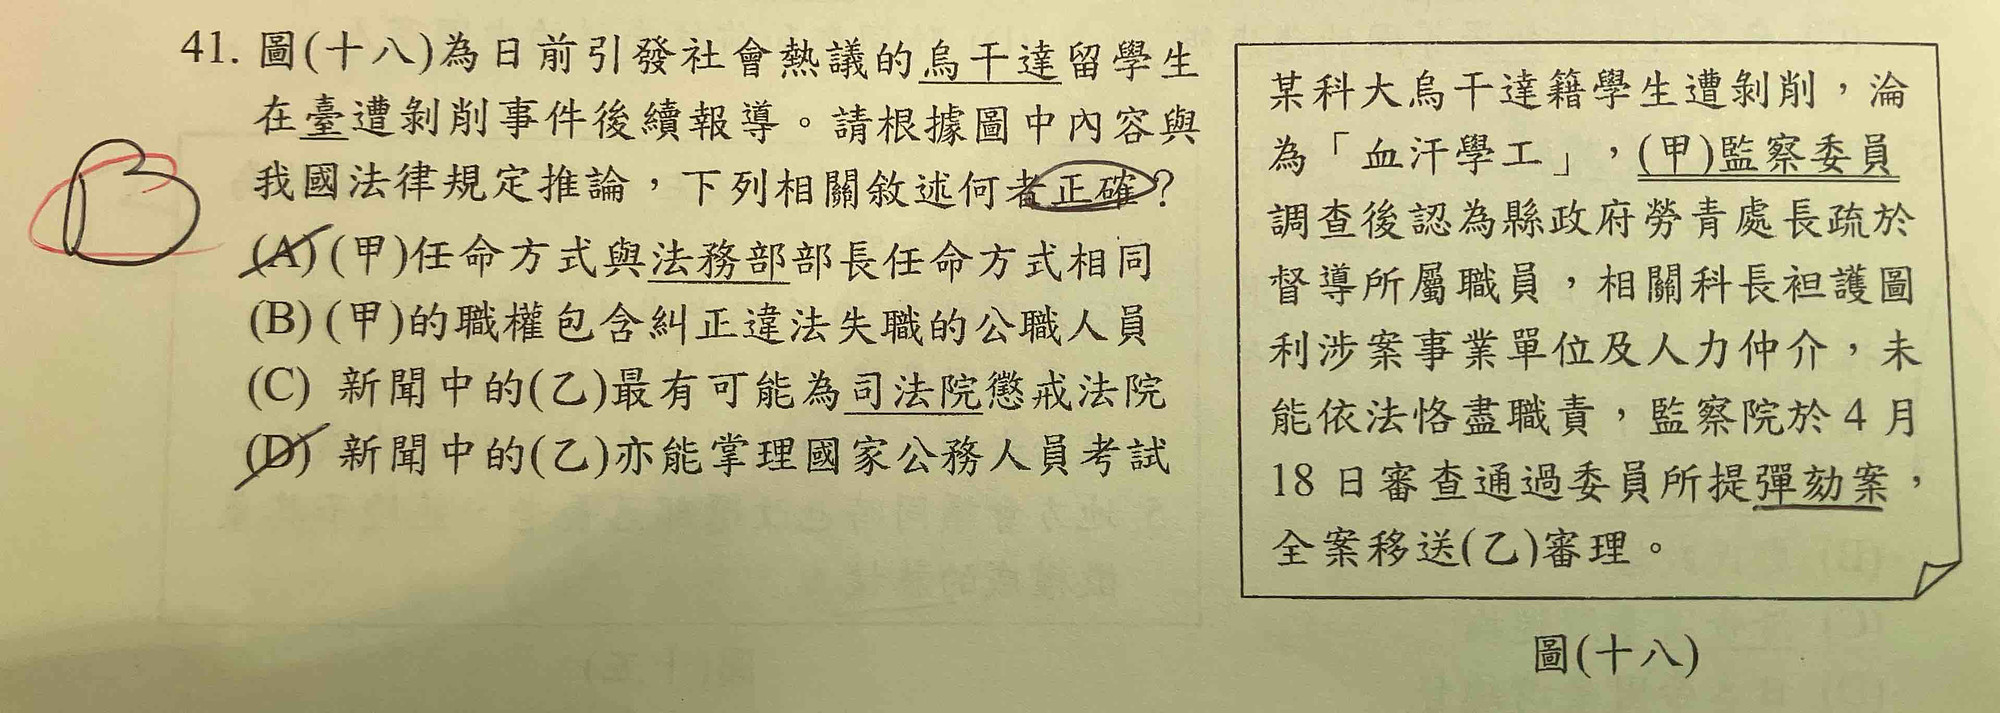 41. 圖(十八)為日前引發社會熱議的烏干達留學生
在臺遭剝削事件後續報導。請根據圖中內容與
我國法律規定推論，下列相關敘述何者正確？
(A) (甲)任命方式與法務部部長任命方式相同
(B) (甲)的職權包含糾正違法失職的公職人員
(C) 新聞中的(乙)最有可能為司法院懲戒法院
(D) 新聞中的(乙)亦能掌理國家公務人員考試
B
某科大烏干達籍學生遭剝削，淪
為「血汗學工」，(甲)監察委員
調查後認為縣政府勞青處長疏於
督導所屬職員，相關科長袒護圖
利涉案事業單位及人力仲介，未
能依法恪盡職責，監察院於 4 月
18 日審查通過委員所提彈劾案，
全案移送(乙)審理。
圖(十八)